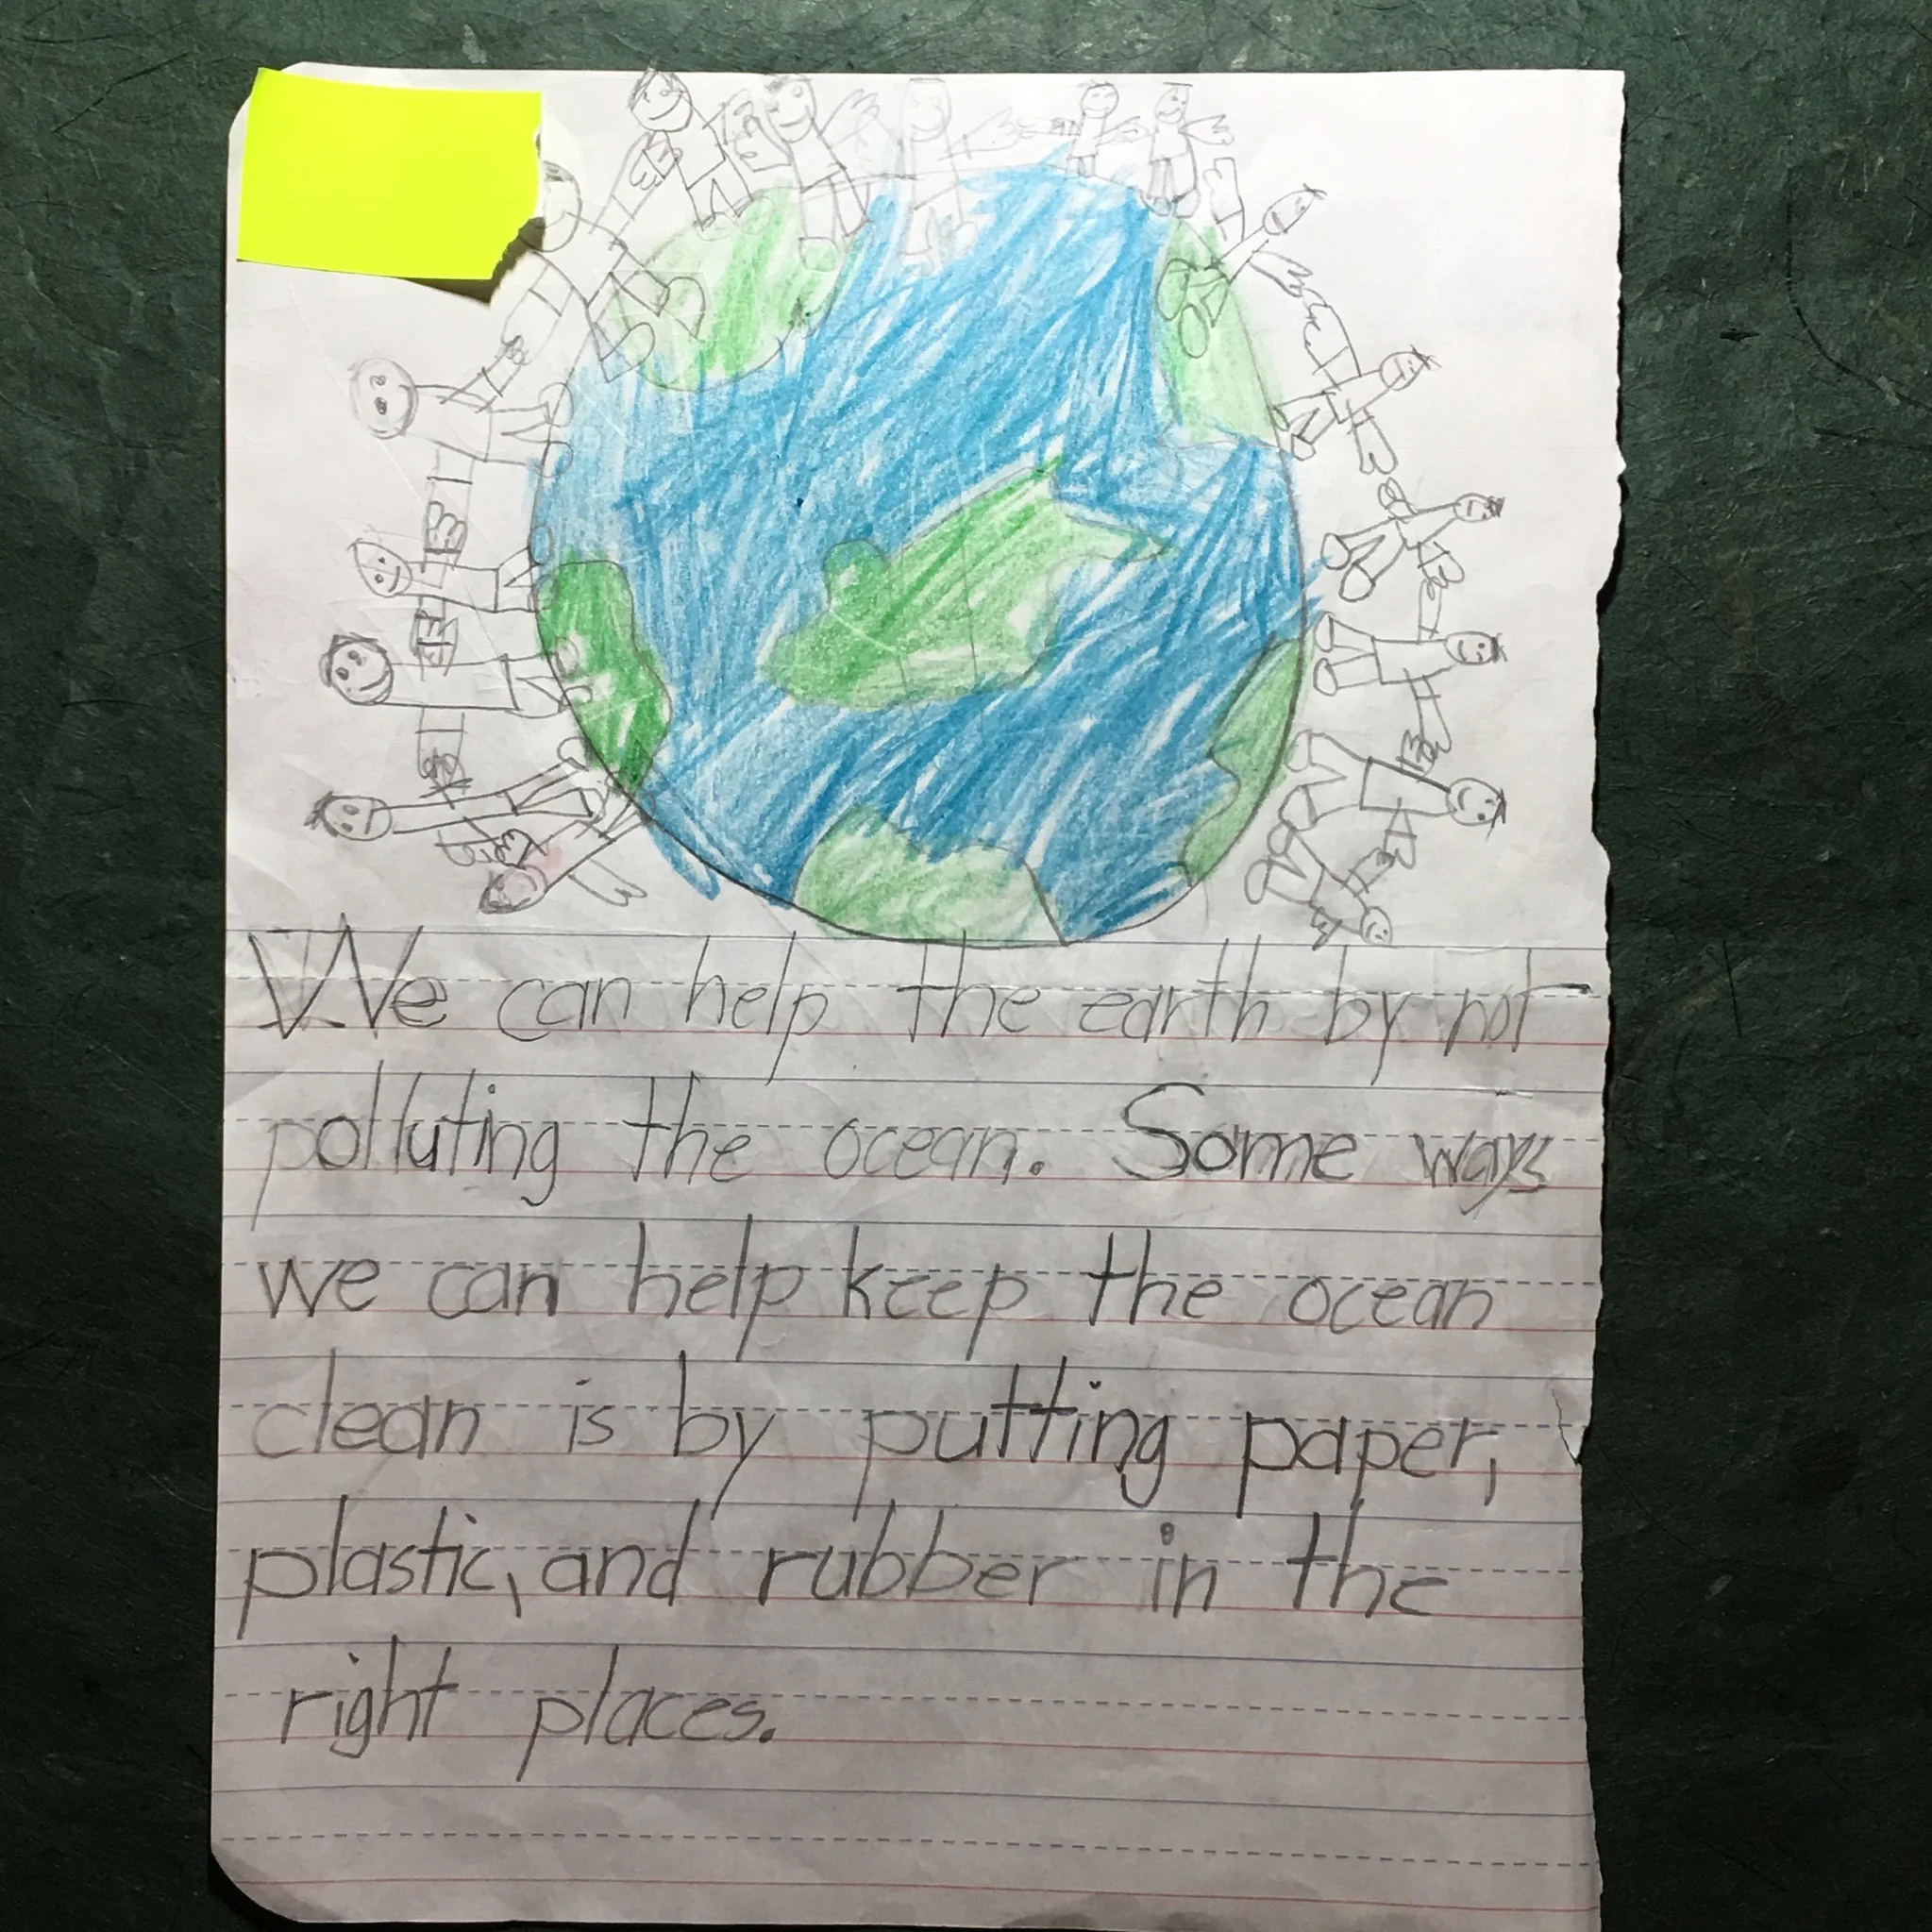 We can help the earth by not
polluting the ocean. Some ways
we can help keep the ocean
clean is by putting paper,
plastic, and rubber in the
right places.